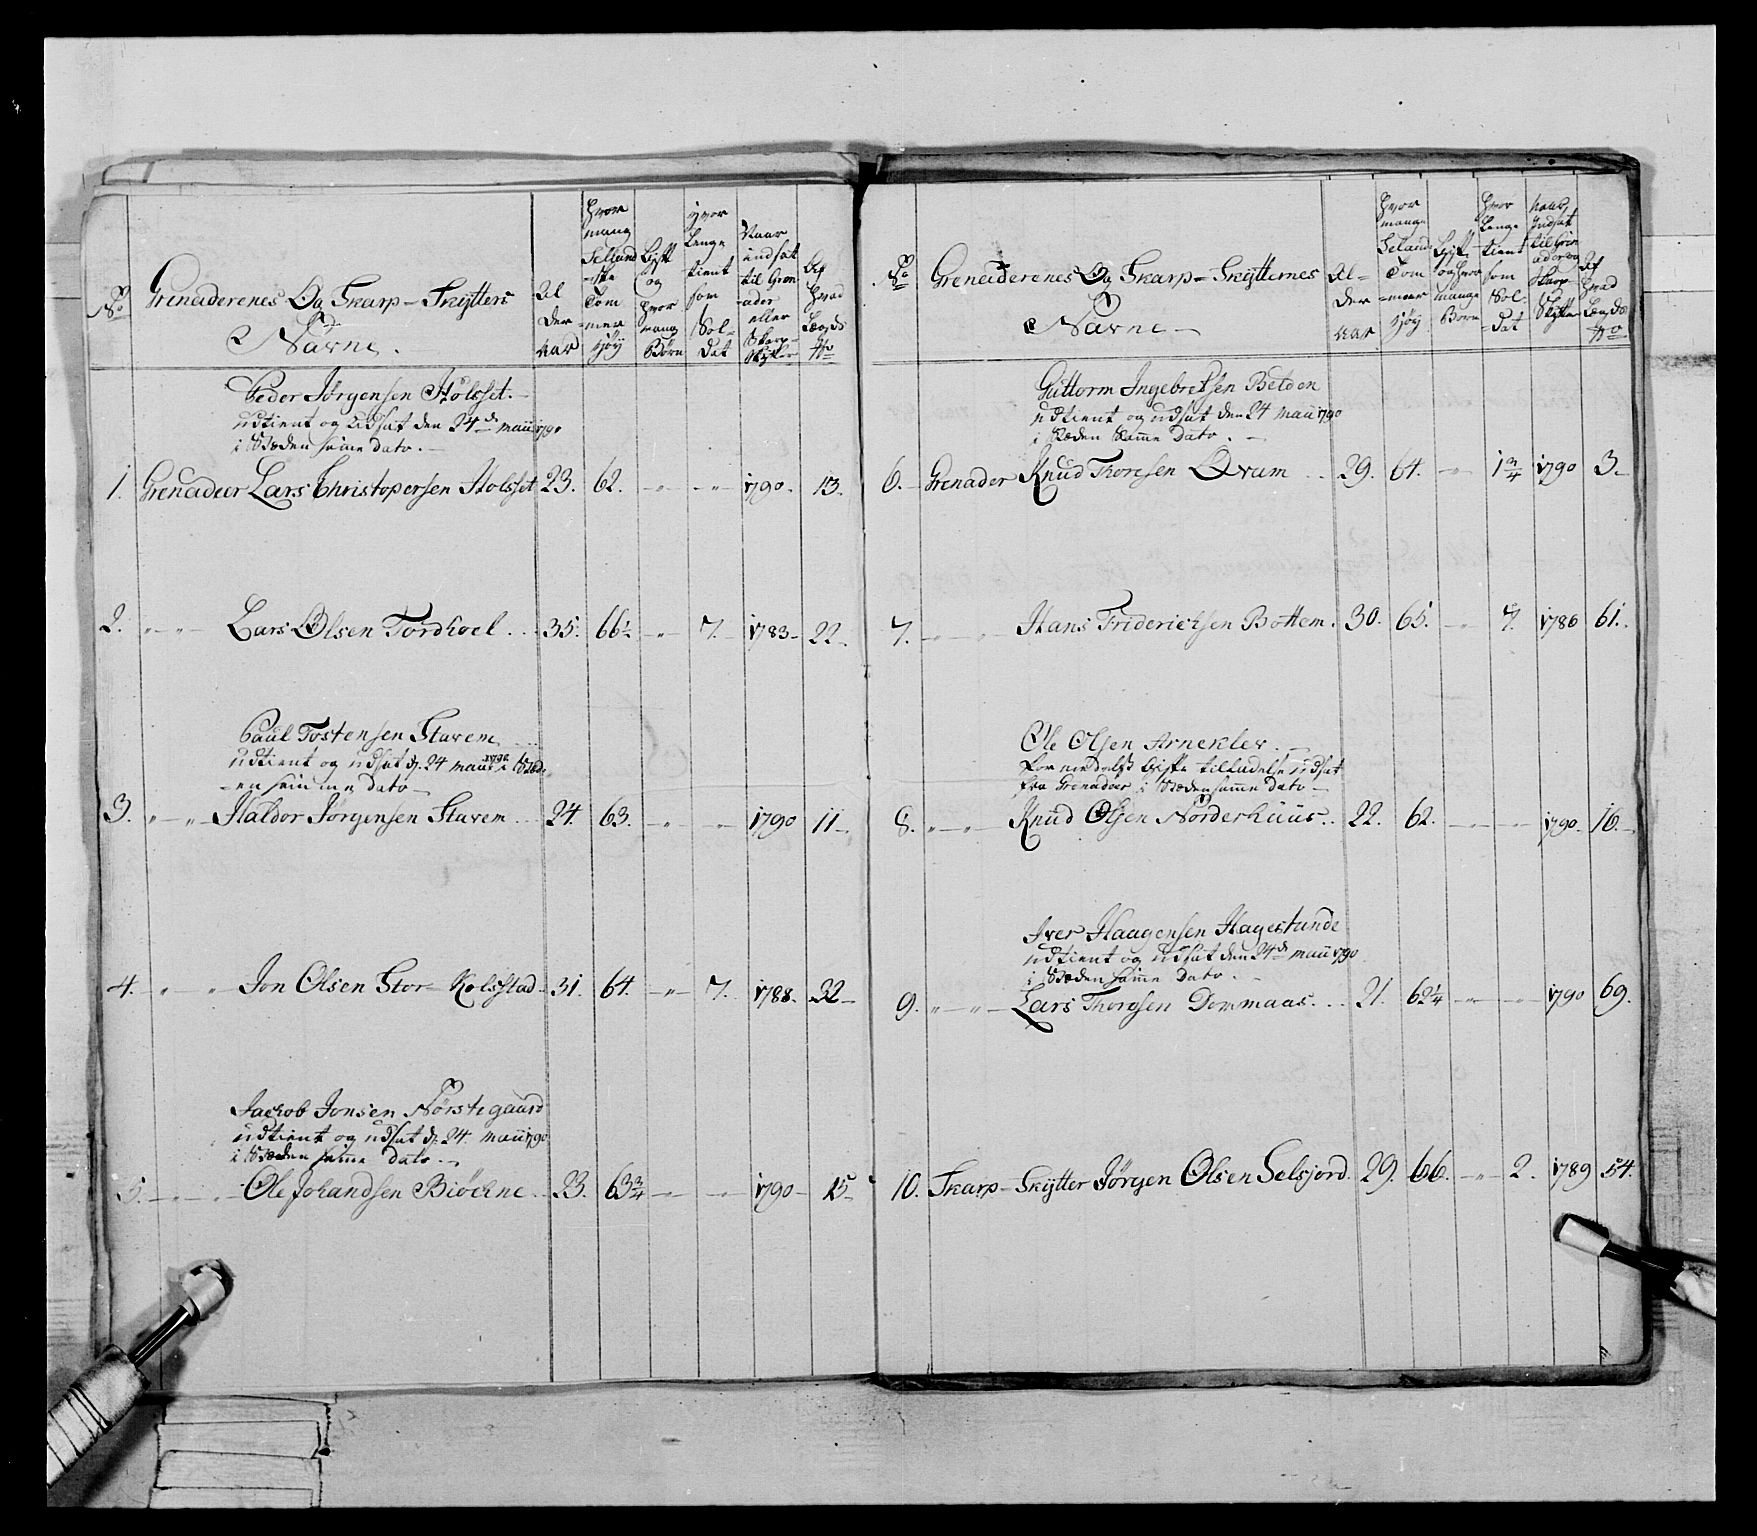 No
Grenaderenes Og Skarp-Skytters
Navne.
Al
der
aar
Hvor
mang
Selland
-ske
Tom
-mer
høy
Gift
og
hvor
mang
Børn
hvor
lenge
tient
som
Sol-
dat
Naar
indsat
til Gren
-ader
eller
Skarp-
Skytter
Af
hvad
Lægds
No
Peder Jørgensen Holsset.
udtient og udsat den 24de maii 1790
i Stæden samme dato.
1. Grenadeer Lars Christopersen Holsset 23. 62. -"- -"- 1790. 13.
2. -"-"- Lars Olsen Tordhoel 35. 66½ -"- 7. 1783 22
Paul Tostensen Stavem
udtient og udsat d. 24 maii 1790 i Stæd-
-en samme dato
3. -"-"- Haldor Jørgensen Stavem 24. 63. -"- -"- 1790 11
4. " " Jon Olsen Stor-Kolsstad 31. 64. -"- 7. 1788. 32
Jackob Jonsen Nørstegaard
udtient og udsat d. 24. maii 1790
i Stæden samme dato
5. -"-"- Ole Johandsen Biøckne 23. 63¾ -"- -"- 1790 15
No
Grenaderenes Og Skarp-Skytternes
Navne
Al-
der
aar
Hvor
mange
Seland
Tom
-mer
høy
Gift
og hvor
mange
Børn
Hvor
lenge
tient
som
Sol-
dat
Naar
Indsat
til Gren
ader og
Skarp-
Skytter
Af
Hvad
Lægds
No
Guttorm Ingebretsen Betden
udtient og udsat den 24 maii 1790
i Stæden Samme Dato.
6. Grenader Knud Thoresen Qvam 29. 64. -"- 1¾ 1790 3.
7. -"-"- Hans Friderichsen Bottem. 30. 65. -"- 7. 1786 61.
Ole Olsen Arnekler.
formedelst Gifte tilladelse udsat
fra Grenadeer i Stæden samme dato
8. "-"- Knud Olsen Norderhuus. 22. 62. 1790. 16.
Iver Haagensen Hagestunde
udtient og udsat den 24de maii 1790
i Stæden samme dato.
9. "-"- Lars Thorosen Dommaas. 21. 62¼ -"- -"- 1790 69.
10. Skarp-Skytter Jørgen Olsen Selsjord 29. 66. -"- 2. 1789 54.